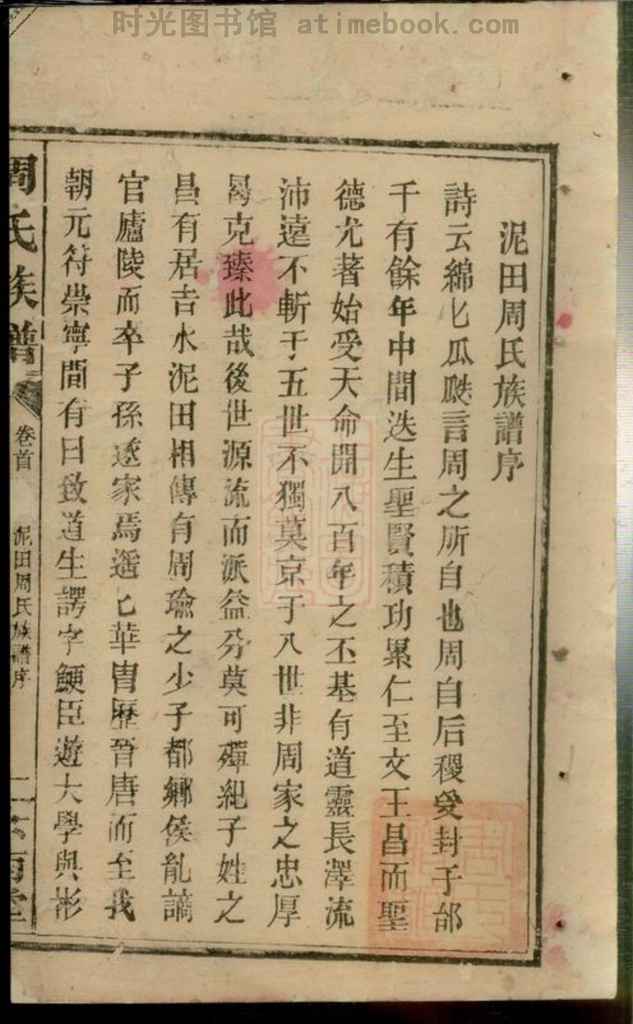 时光图书馆 atimebook.com
泥田周氏族譜序
詩云綿匕瓜瓞言周之所自也周自后稷受封于邰
千有餘年中間迭生聖賢積功累仁至文王昌而聖
德尤著始受天命開八百年之丕基有道靈長澤流
沛遠不斬于五世不獨莫京于八世非周家之忠厚
曷克臻此哉後世源流而派益分莫可殫紀子姓之
昌有居吉水泥田相傳有周瑜之少子都鄉侯胤謫
官廬陵而卒子孫遂家焉遥匕華胄歷晉唐而至我
朝元符崇寧間有曰敦道生諤字鯁臣遊大學與彬
周氏族譜 卷首 泥田周氏族譜序 一